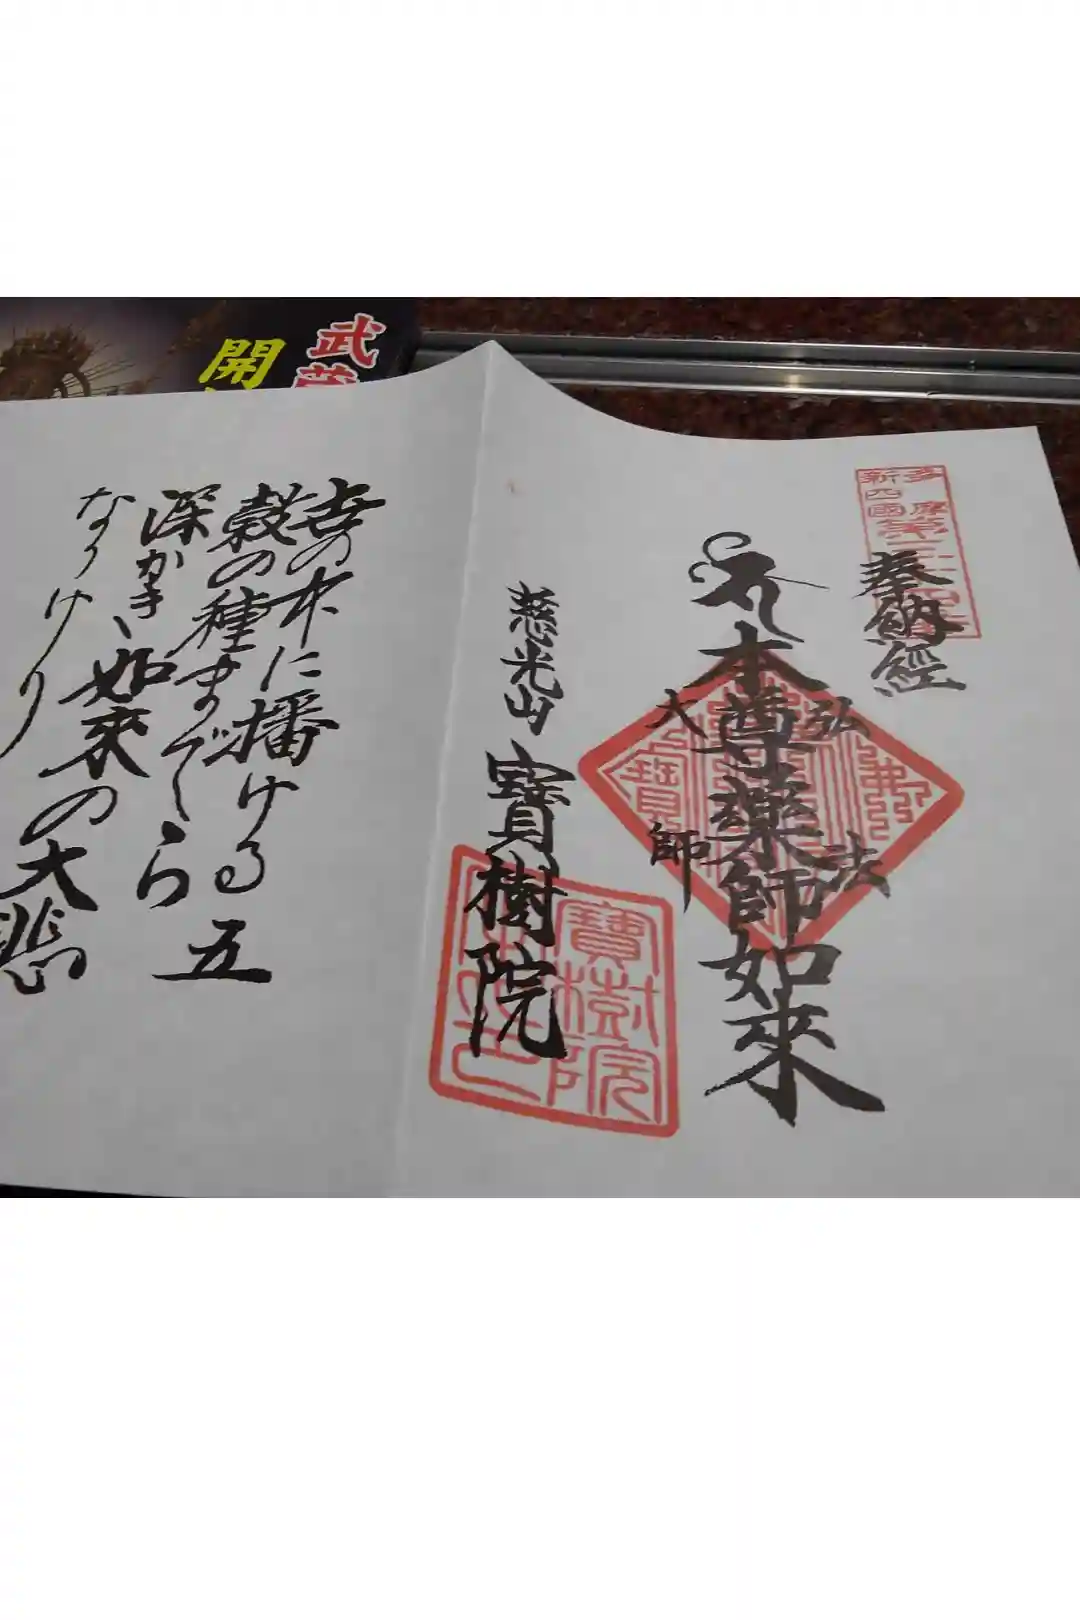 多摩
新四國
奉納經
弘法
本尊薬師如來
大師
慈光山
寶樹院
寶樹院
の木に播ける五
穀の種までくら
深かき、如来の大悲
なりけり
武
開